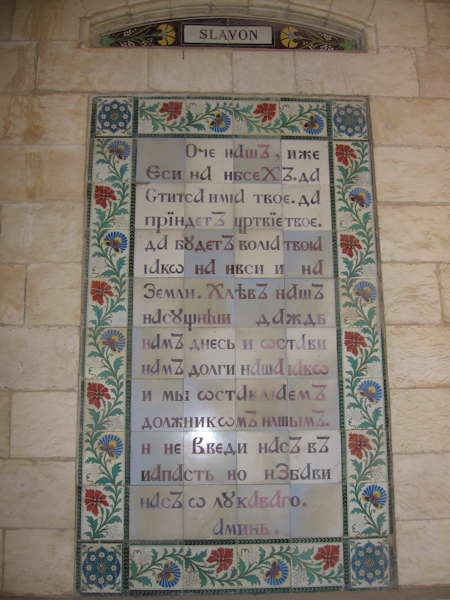 SLAVON
Оче нашЪ, иже
Єси на нбсеХЪ. да
Ститса имıа твое. да
прїидетЪ цртвїе твое.
да бꙋдетЪ волıа твоıа
ıакѡ на нвси и на
Земли. ХлѣвЪ нашЪ
насꙋщный даждь
намЪ днесь и ѡстави
намЪ долги наша ıакѡ
и мы ѡставлıаемЪ
должникѡмЪ нашымЪ.
и не Введи насЪ вЪ
напасть но изБави
насЪ ѿ лукаваго.
аминь.